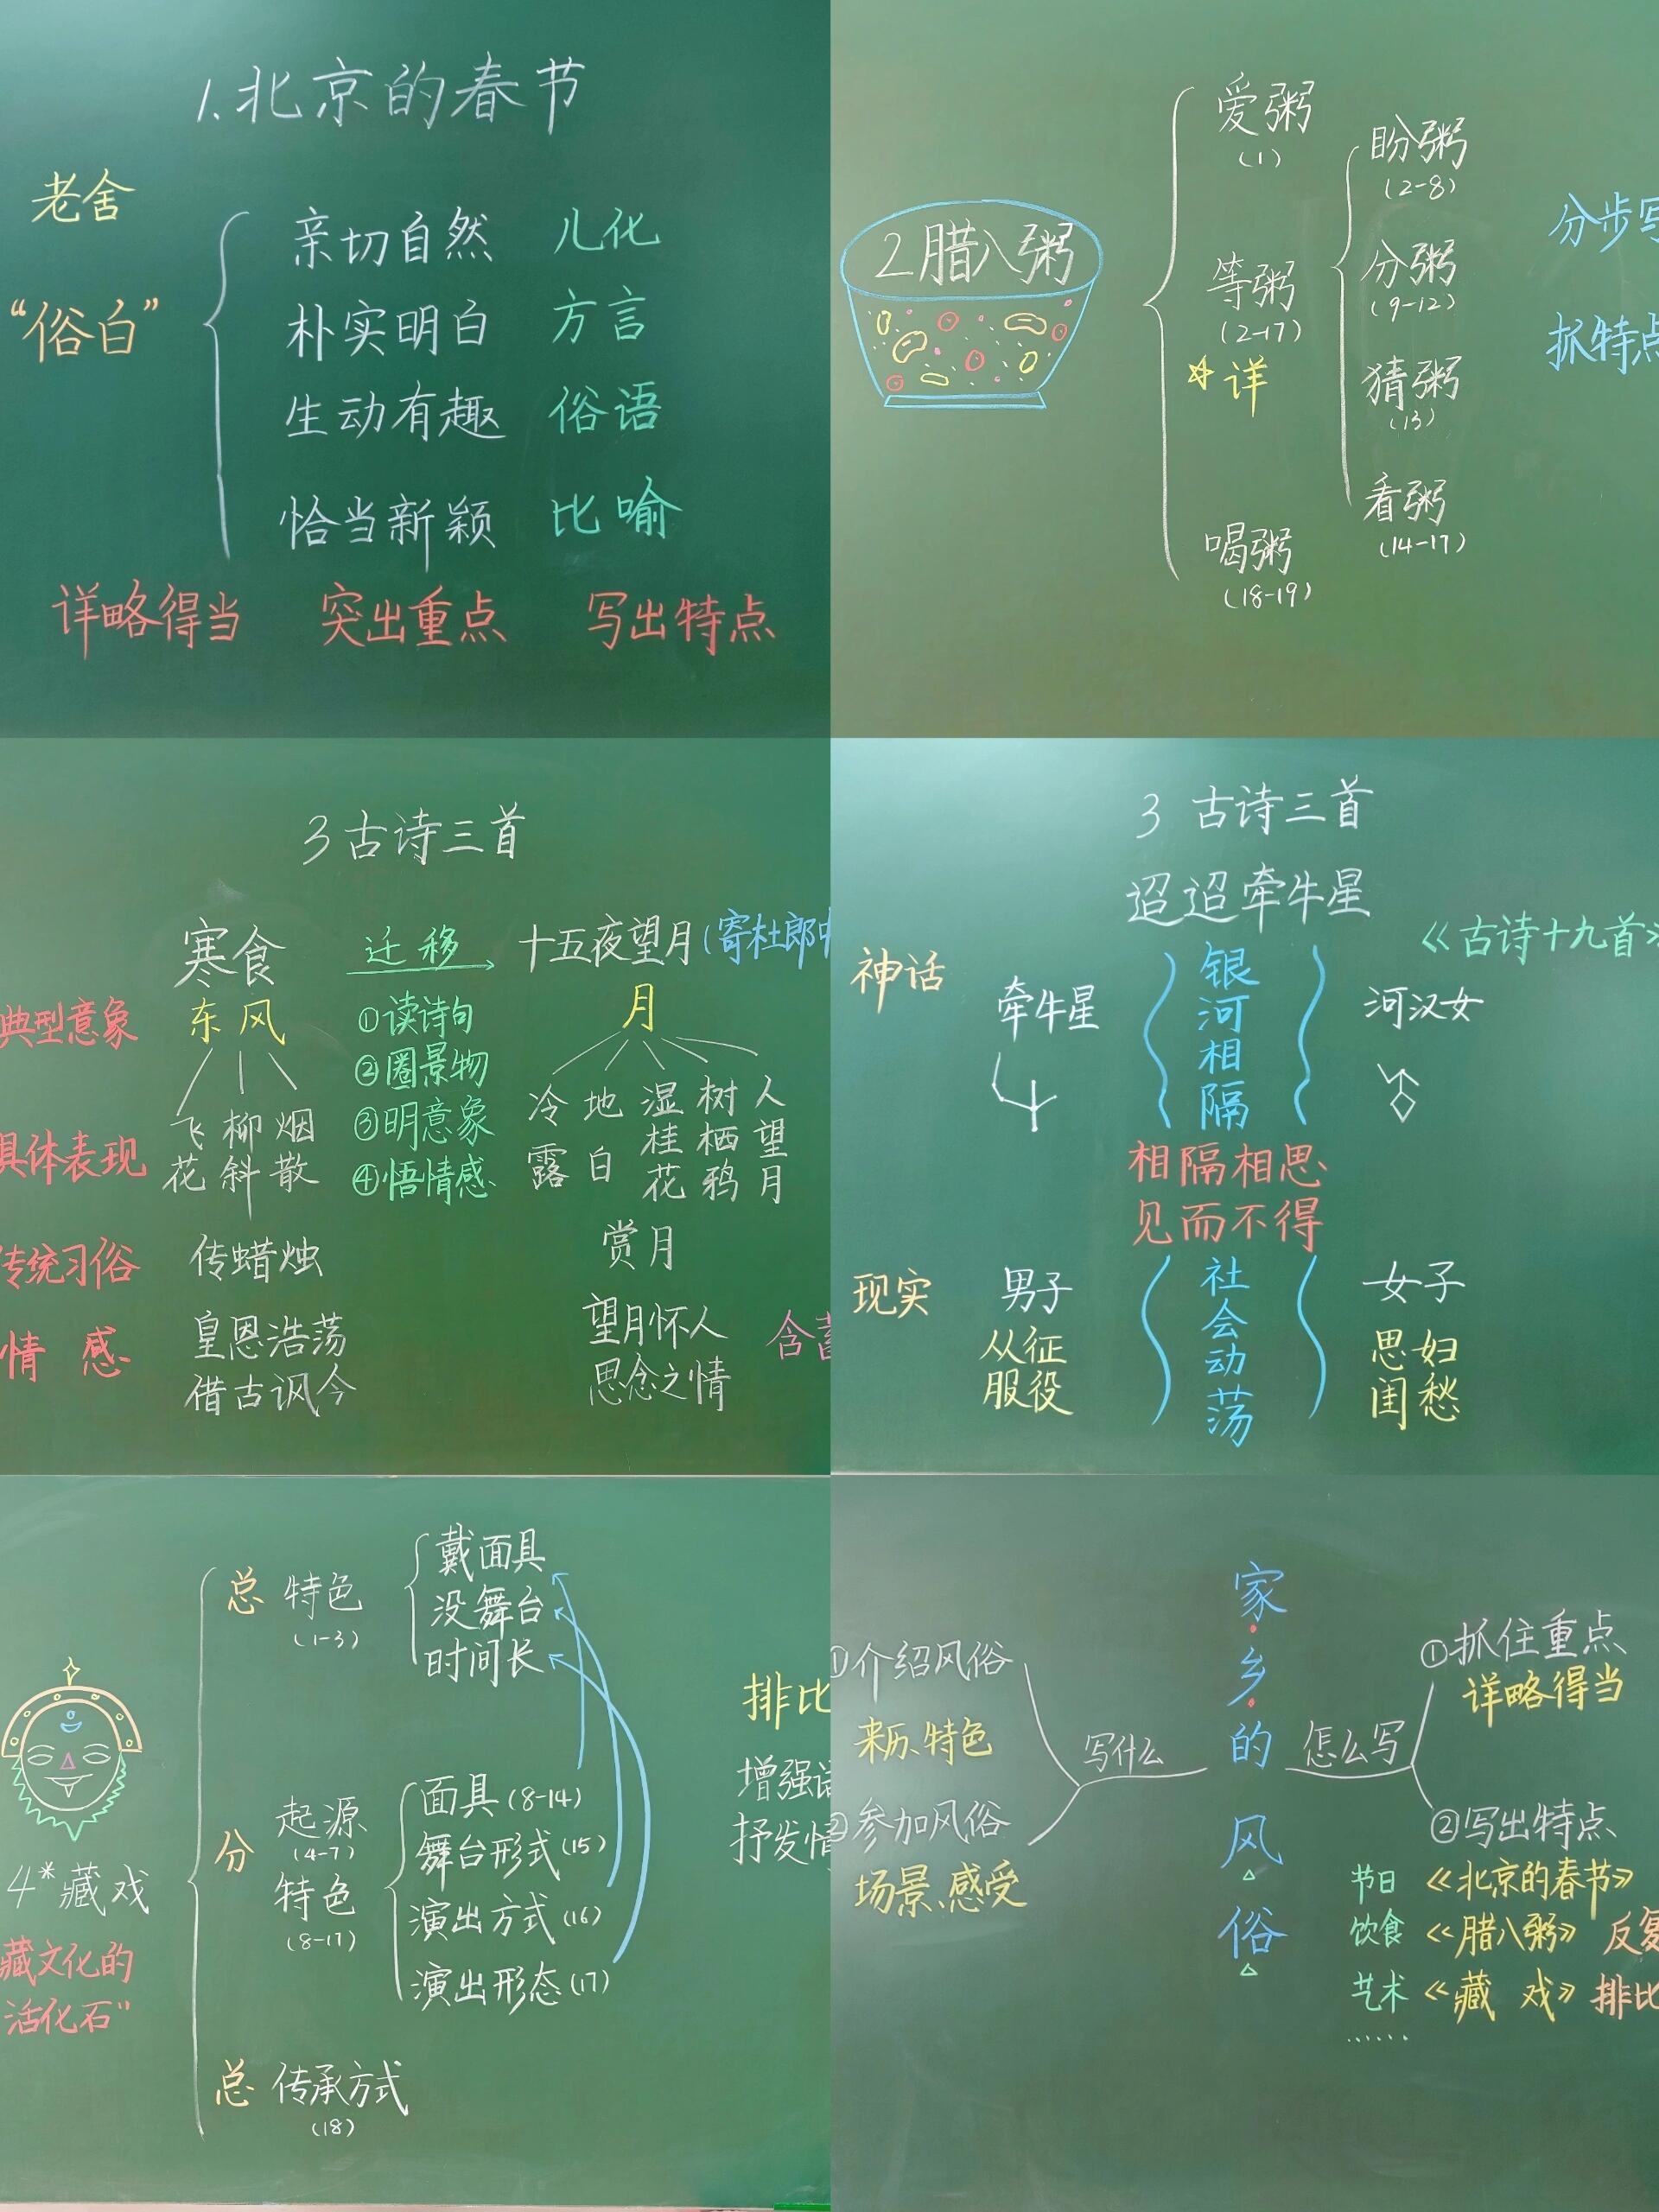 1.北京的春节
老舍
“俗白”
亲切自然 儿化
朴实明白 方言
生动有趣 俗语
恰当新颖 比喻
详略得当 突出重点 写出特点
2腊八粥
爱粥
(1)
等粥
(2-17)
☆详
喝粥
(18-19)
盼粥
(2-8)
分粥
(9-12)
猜粥
(13)
看粥
(14-17)
分步写
抓特点
3古诗三首
寒食 迁移 十五夜望月(寄杜郎中
典型意象 东风 月
①读诗句
②圈景物
③明意象
④悟情感
具体表现 飞花 柳斜 烟散 冷露 地白 湿桂花 树栖鸦 人望月
传统习俗 传蜡烛 赏月
情感 皇恩浩荡 望月怀人
借古讽今 思念之情
含蓄
3 古诗三首
迢迢牵牛星
《古诗十九首》
神话 牵牛星 银河相隔 河汉女
相隔相思
见而不得
现实 男子 社会动荡 女子
从征 思妇
服役 闺愁
4*藏戏
藏文化的
活化石”
总 特色
(1-3)
戴面具
没舞台
时间长
分 起源
(4-7)
特色
(8-17)
面具(8-14)
舞台形式(15)
演出方式(16)
演出形态(17)
总 传承方式
(18)
排比
增强
抒发情
家乡的风俗
写什么
①介绍风俗
来历、特色
②参加风俗
场景、感受
怎么写
①抓住重点
详略得当
②写出特点
节日 《北京的春节》
饮食 《腊八粥》 反复
艺术 《藏 戏》 排比
……